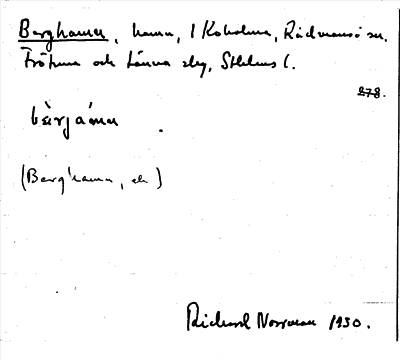 Berghamn, hamn, 1 Koholma, Rådmansö sn.
Fröjuna och Länna skg, Sthlms l.
278.
bærjámn
(Berg'hamn, ek)
Richard Norrman 1930.